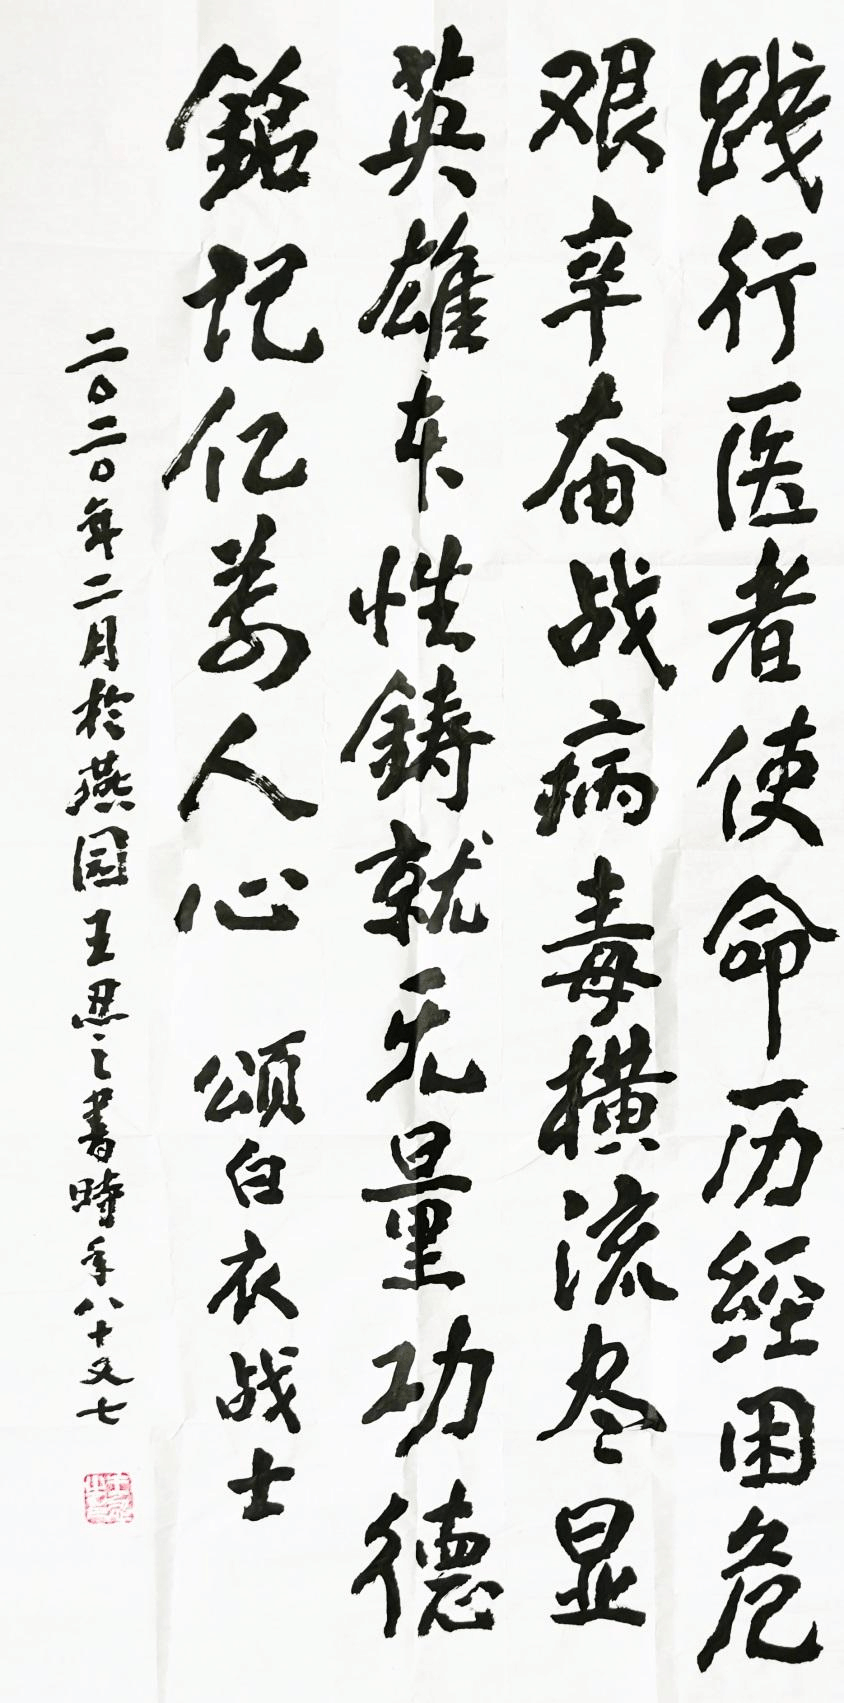 践行医者使命历经困危
艰辛奋战病毒横流尽显
英雄本性铸就无量功德
銘记亿万人心 頌白衣战士
二〇二〇年二月於燕园王思之書時年八十又七